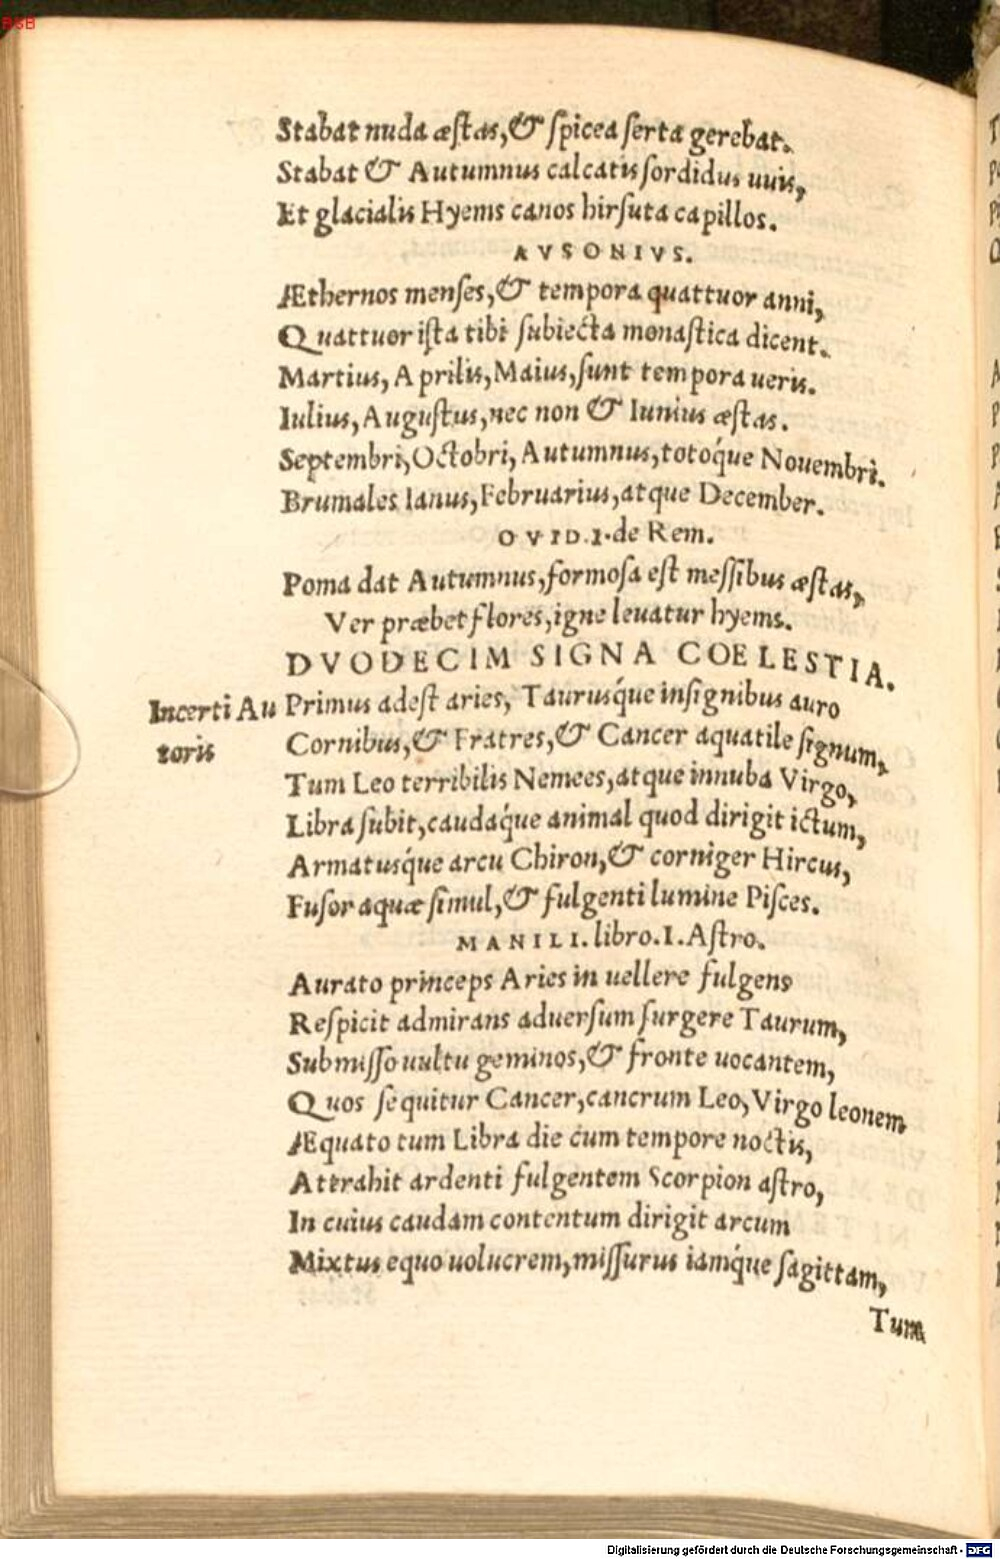 BSB
Stabat nuda æstas, & spicea serta gerebat.
Stabat & Autumnus calcatis sordidus uuis,
Et glacialis Hyems canos hirsuta capillos.
AVSONIVS.
Æthernos menses, & tempora quattuor anni,
Quattuor ista tibi subiecta monastica dicent.
Martius, Aprilis, Maius, sunt tempora ueris.
Iulius, Augustus, nec non & Iunius æstas.
Septembri, Octobri, Autumnus, totóque Nouembri.
Brumales Ianus, Februarius, atque December.
OVID. I. de Rem.
Poma dat Autumnus, formosa est messibus æstas,
Ver præbet flores, igne leuatur hyems.
DVODECIM SIGNA COELESTIA.
Incerti Au Primus adest aries, Taurusq́ue insignibus auro
toris Cornibus, & Fratres, & Cancer aquatile signum,
Tum Leo terribilis Nemees, atque innuba Virgo,
Libra subit, caudaq́ue animal quod dirigit ictum,
Armatusq́ue arcu Chiron, & corniger Hircus,
Fusor aquæ simul, & fulgenti lumine Pisces.
MANILI. libro. I. Astro.
Aurato princeps Aries in uellere fulgens
Respicit admirans aduersum surgere Taurum,
Submisso uultu geminos, & fronte uocantem,
Quos sequitur Cancer, cancrum Leo, Virgo leonem
Æquato tum Libra die cum tempore noctis,
Attrahit ardenti fulgentem Scorpion astro,
In cuius caudam contentum dirigit arcum
Mixtus equo uolucrem, missurus iamq́ue sagittam,
Tum
Digitalisierung gefördert durch die Deutsche Forschungsgemeinschaft - DFG